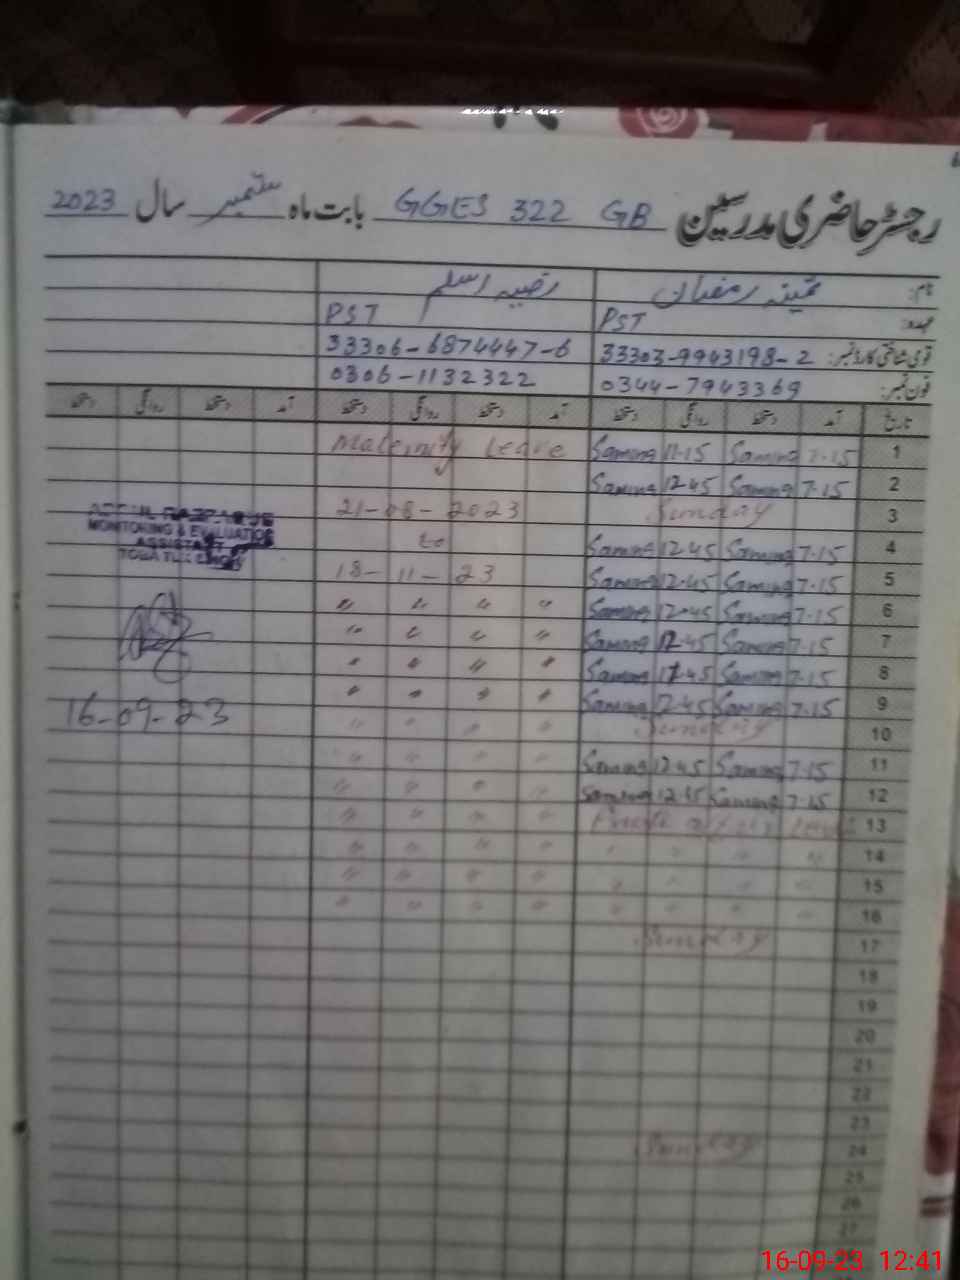 رجسٹر حاضری مدرسین GGES 322 GB بابت ماہ ستمبر سال 2023
نام: ثمینہ رمضان رضیہ اسلم
عہدہ: PST PST
قومی شناختی کارڈ نمبر: 33303-9943198-2 33306-6874447-6
فون نمبر: 0344-7943369 0306-1132322
تاریخ آمد دستخط روانگی دستخط آمد دستخط روانگی دستخط آمد دستخط روانگی دستخط
1 7-15 Samina 11-15 Samina Maternity Leave
2 7-15 Samina 12-45 Samina
3 Sunday 21-08-2023
4 7-15 Samina 12-45 Samina to
5 7-15 Samina 12-45 Samina 18-11-23
6 7-15 Samina 12-45 Samina " " " "
7 7-15 Samina 12-45 Samina " " " "
8 7-15 Samina 12-45 Samina " " " "
9 7-15 Samina 12-45 Samina " " " "
10 Sunday " " " "
11 7-15 Samina 12-45 Samina " " " "
12 7-15 Samina 12-45 Samina " " " "
13 " " " "
14 " " " " " " " "
15 " " " " " " " "
16 " " " " " " " "
17 Sunday
18
19
20
21
22
23
24 Sunday
25
26
27
MONITORING & EVALUATION
ASSISTANT
16-09-23
16-09-23 12:41